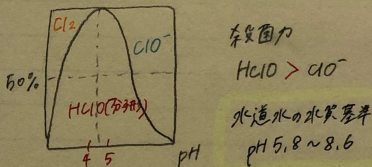 Cl₂
ClO⁻
50%
HClO(分子形)
4 5
pH
殺菌力
HClO > ClO⁻
水道水の水質基準
pH 5.8~8.6